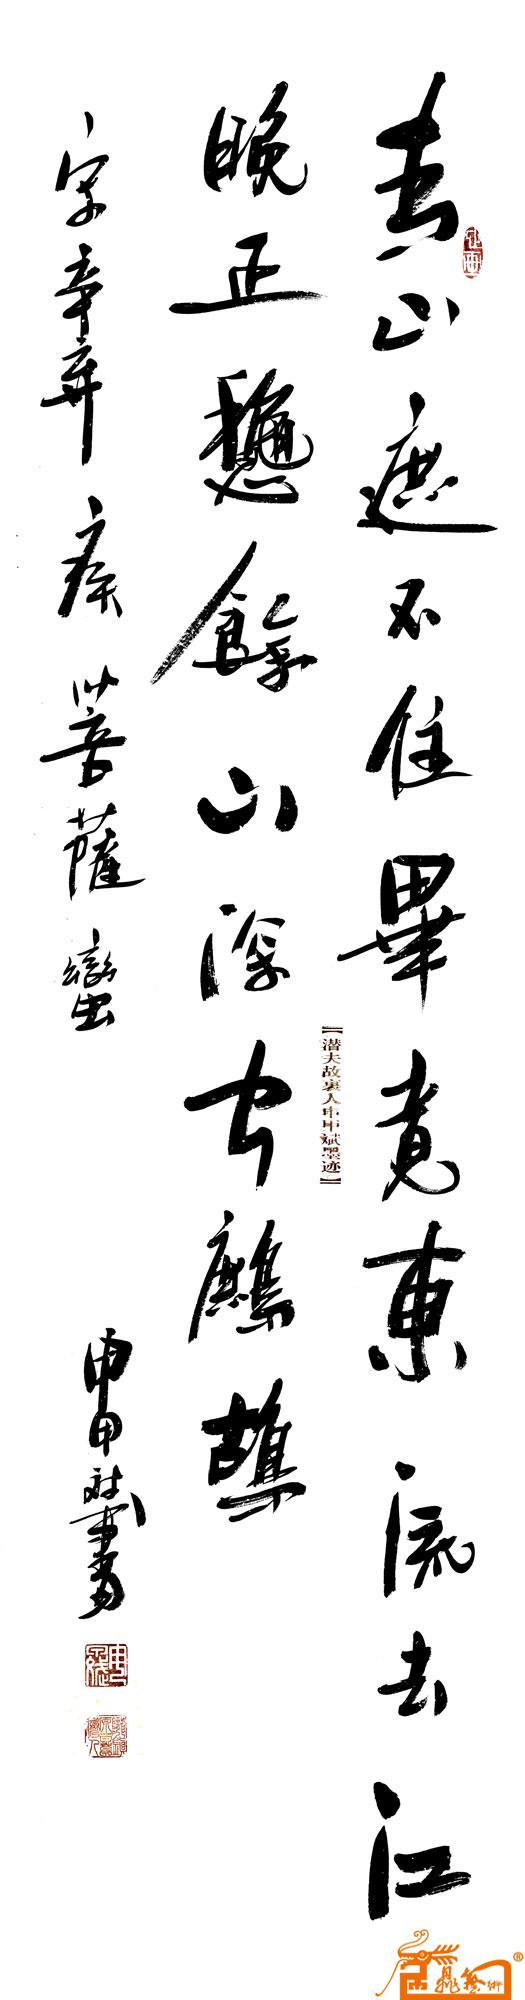 青山遮不住畢竟東流去江
晚正愁餘山深聞鷓鴣
字辛棄疾菩薩蠻
申甲斌書
【潜夫故裏人申甲斌墨迹】